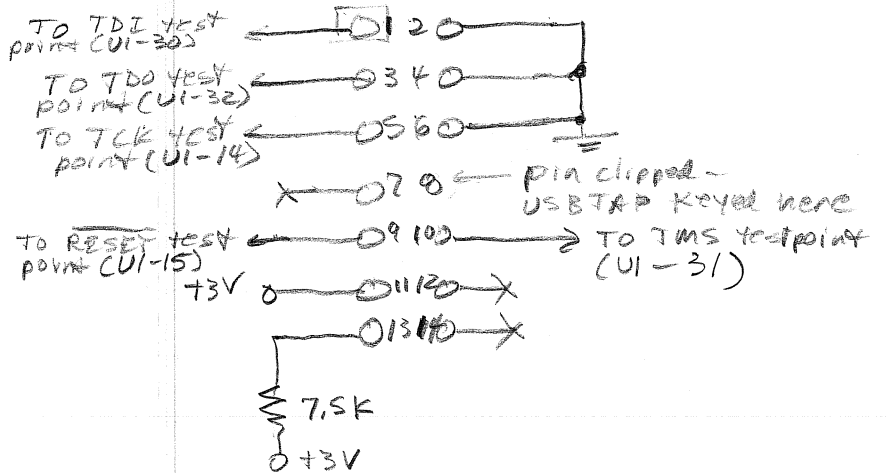 TO TDI test
point (U1-30)
1 2
TO TDO test
point (U1-32)
3 4
TO TCK test
point (U1-14)
5 6
7 8
pin clipped -
USBTAP Keyed here
TO RESET test
point (U1-15)
9 10
TO TMS testpoint
(U1-31)
+3V
11 12
13 14
7.5K
+3V